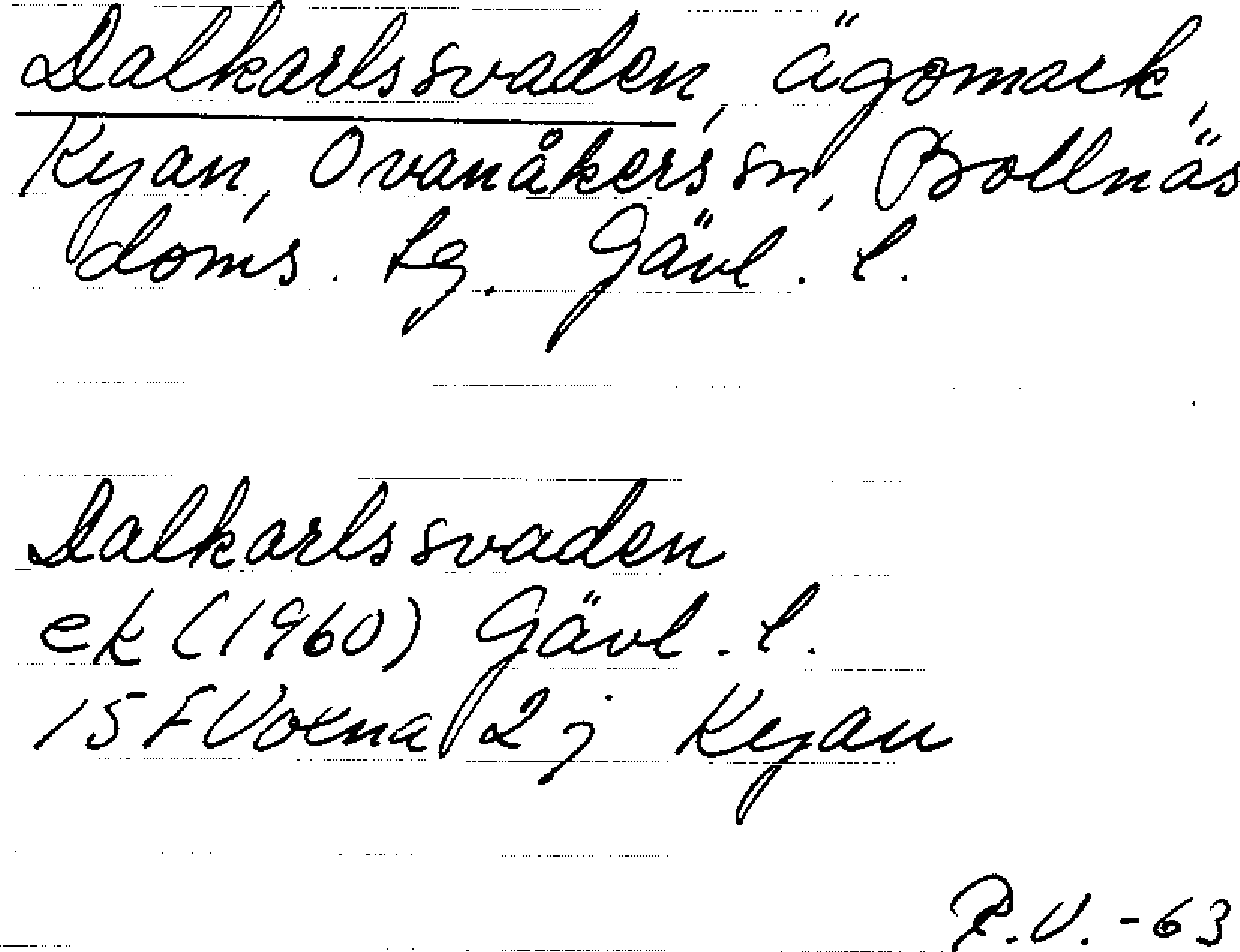 Dalkarlssvaden, ägomark,
Kyan, Ovanåkers sn, Bollnäs
doms. tg. Gävl. l.
Dalkarlssvaden
ek (1960) Gävl. l.
15 F Voxna 2 j Kyan
P.V. -63